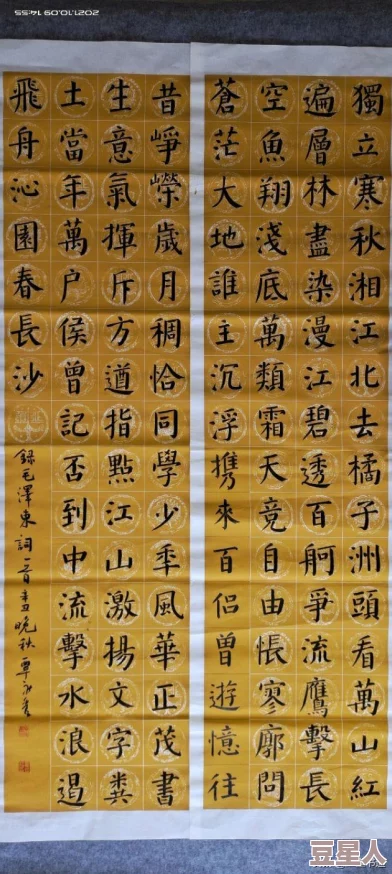 獨立寒秋湘江北去橘子洲頭看萬山紅
遍層林盡染漫江碧透百舸爭流鷹擊長
空魚翔淺底萬類霜天竟自由悵寥廓問
蒼茫大地誰主沉浮携來百侶曾遊憶往
昔崢嶸歲月稠恰同學少秊風華正茂書
生意氣揮斥方遒指點江山激揚文字糞
土當年萬户侯曾記否到中流擊水浪遏
飛舟沁園春長沙
録毛澤東詞一首辛丑晚秋覃
2021.10.09 14:55
豆星人